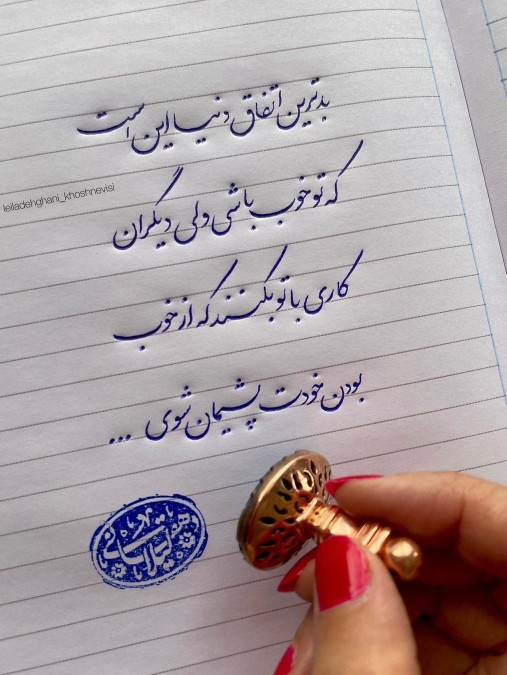 بدترین اتفاق دنیا این است
leiladehghani_khoshnevisi
که تو خوب باشی ولی دیگران
کاری با تو بکنند که از خوب
بودن خودت پشیمان شوی ...